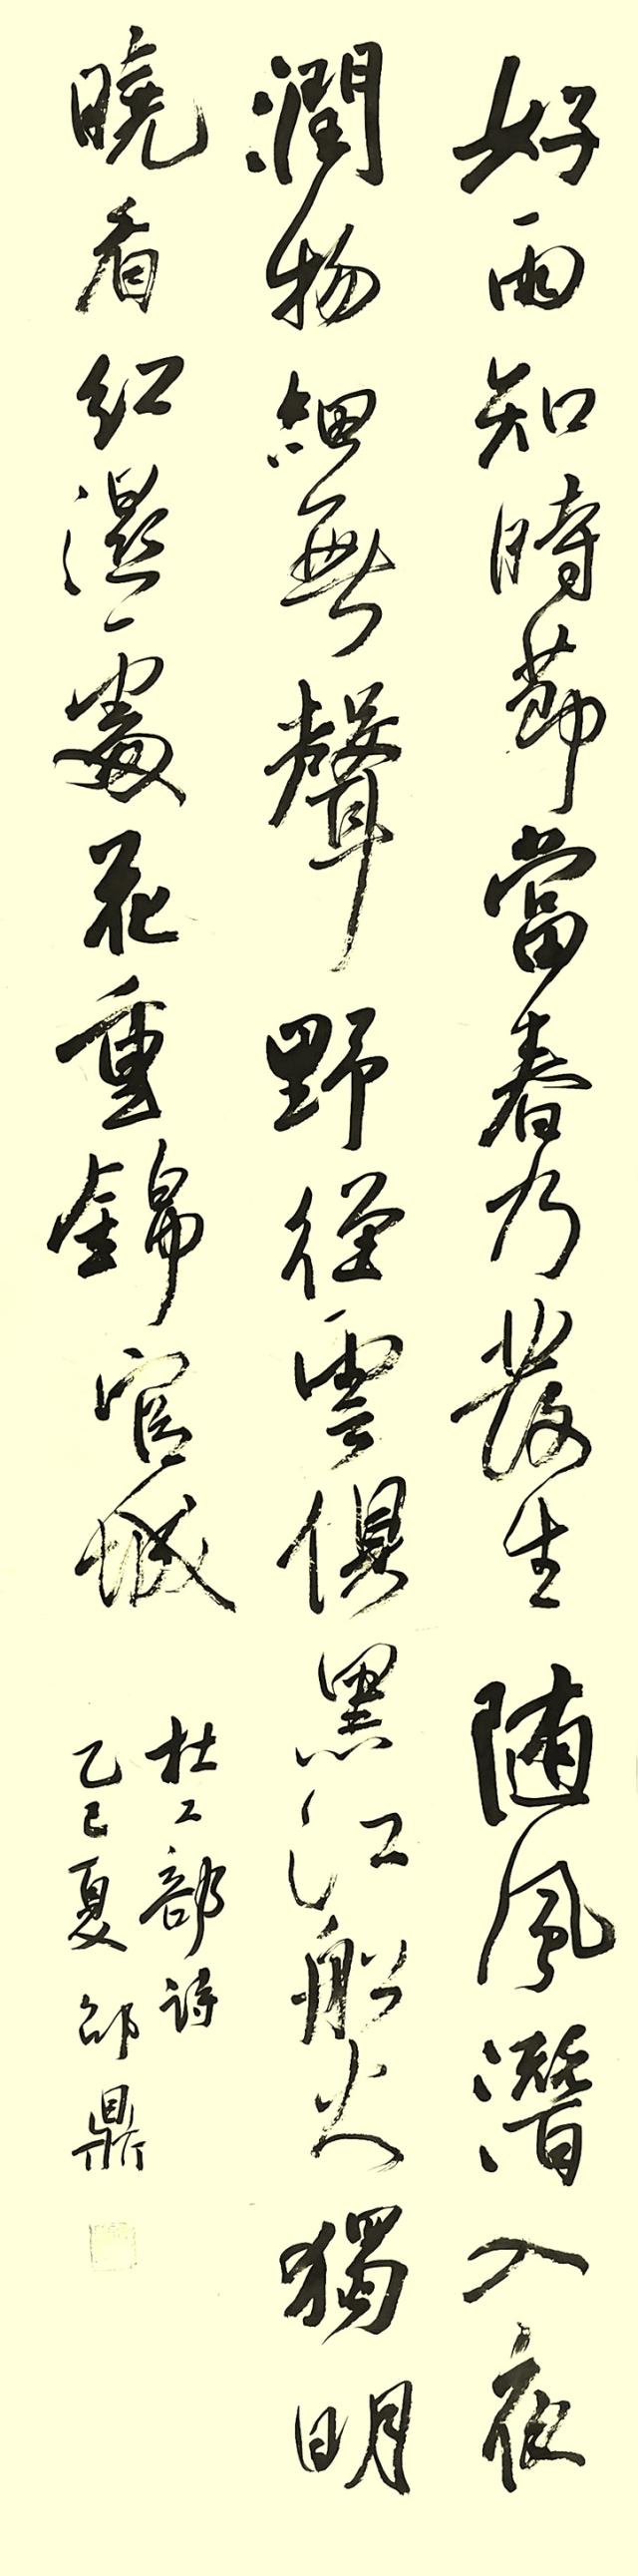 好雨知時節當春乃發生随風潛入夜
潤物細無聲野徑雲俱黑江船火獨明
曉看紅濕處花重錦官城
杜工部詩
乙巳夏邵鼎